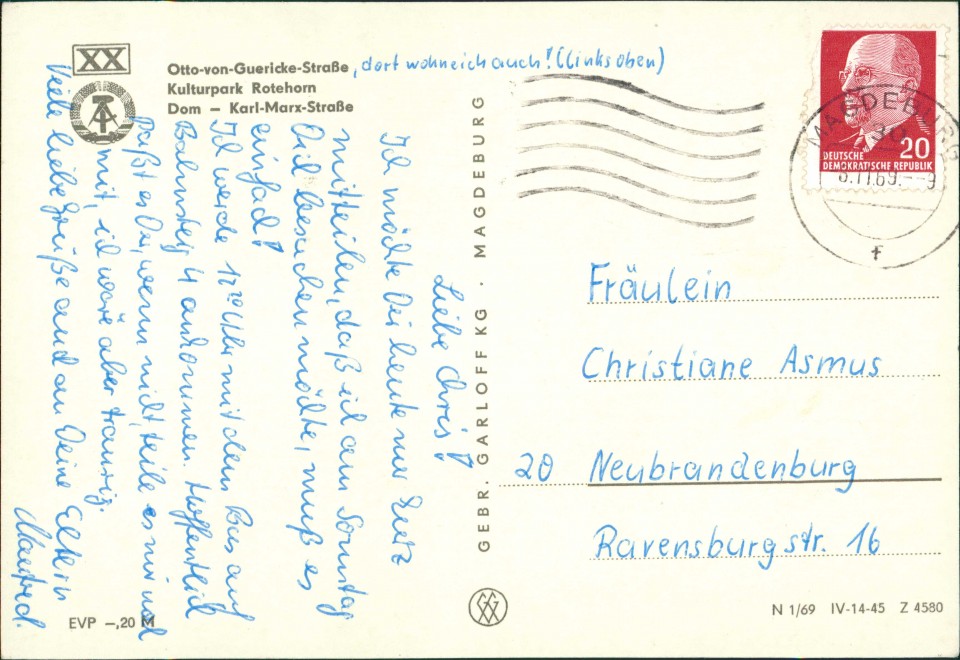 XX
Otto-von-Guericke-Straße, dort wohne ich auch! (links oben)
Kulturpark Rotehorn
Dom – Karl-Marx-Straße
Liebe Chris!
Ich möchte Dir heute nur kurz
mitteilen, daß ich am Sonntag
Dich besuchen möchte, muß es
einfach!
Ich werde 12 Uhr mit dem Bus auf
Bahnsteig 4 ankommen. Hoffentlich
paßt es Dir, wenn nicht, teile es mir noch
mit, ich wäre aber traurig.
Viele liebe Grüße auch an Deine Eltern
Manfred.
EVP –,20 M
GEBR. GARLOFF KG · MAGDEBURG
DEUTSCHE
DEMOKRATISCHE REPUBLIK
20
MAGDEBURG
30
.11.69.–9
f
Fräulein
Christiane Asmus
20 Neubrandenburg
Ravensburgstr. 16
N 1/69 IV-14-45 Z 4580